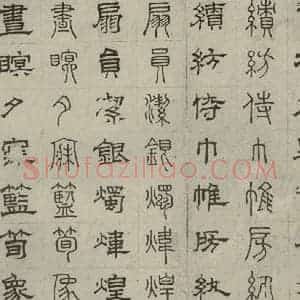 績紡侍巾帷房紈
績紡侍巾帷房紈
扇員潔銀燭煒煌
扇員潔銀燭煒煌
晝瞑夕寐籃筍像
晝瞑夕寐籃筍象
Shufaziliao.com